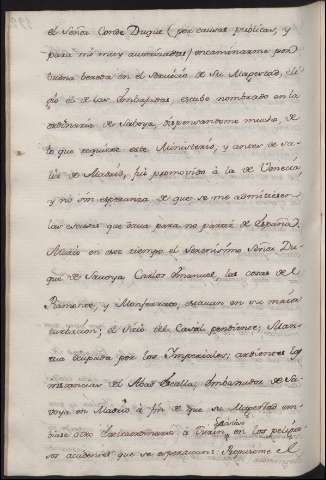 el Señor Conde Duque (por causas publicas, y
para mi muy autorizadas) encaminarme por
buena bereda en el servicio de Su Magestad, eli
gio el de las Embajadas, estube nombrado en la
ordinaria de Saboya, dispensandome mucho, de
lo que requiere este Ministerio, y antes de sa-
lir de Madrid, fui promovido à la de Venecia,
y no sin esperanza de que se me admitiesen
las escusas que dava para no partir de España.
Murio en este tiempo el Serenisimo Señor Du-
que de Savoya Carlos Emanuel, las cosas de el
Piamonte, y Monferrato, estavan en su maior
turbacion, el sitio del Casal pendiente; Man-
tua ocupada por los Imperiales; ardientes las
instancias del Abad Scalla, Embaxador de Sa-
voya en Madrid à fin de que su Magestad em-
biase otro Extraordinario à Turin en los peligro
sos accidentes que se esperavan: Propusome el